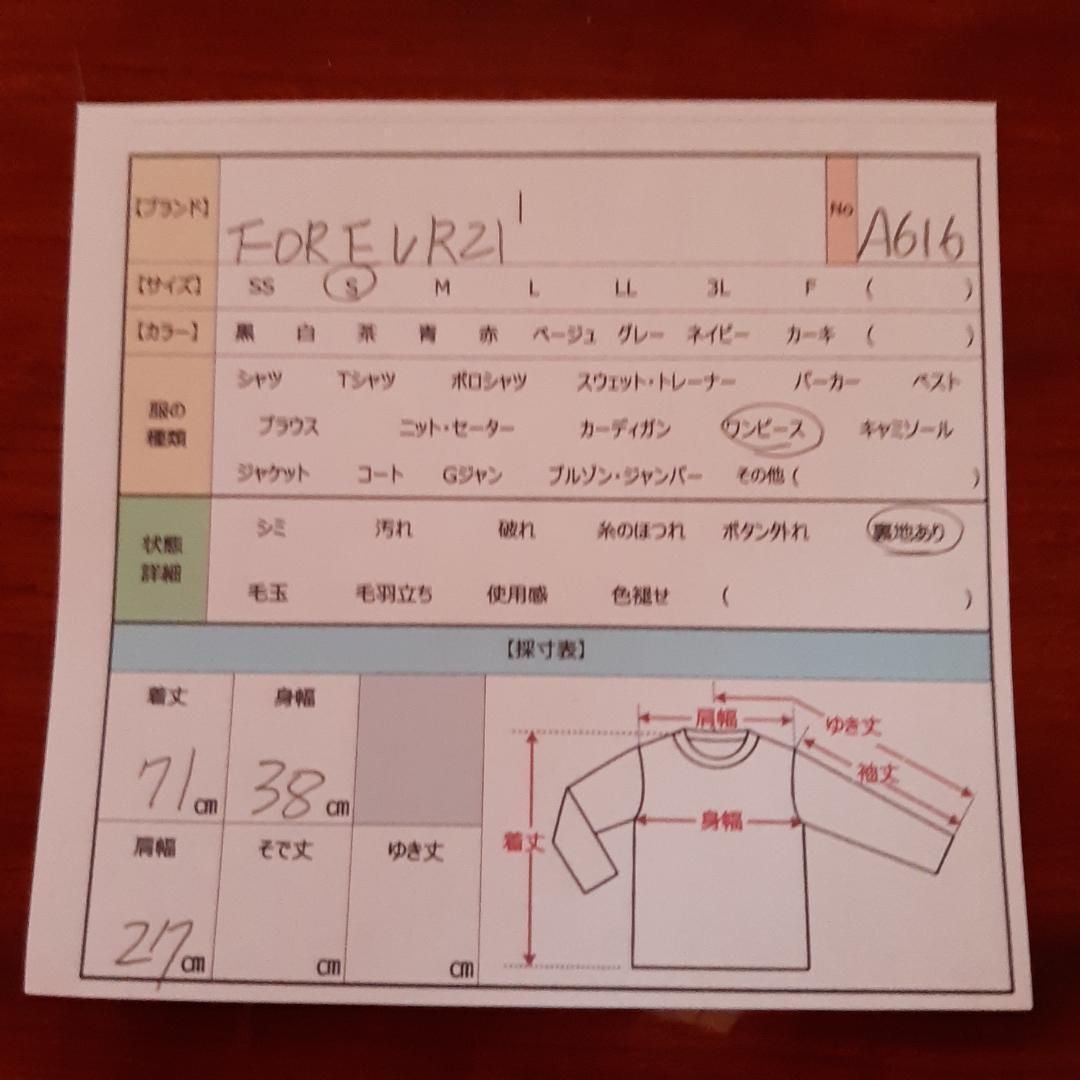 【ブランド】 FOREVR21 No A616
【サイズ】 SS S M L LL 3L F ( )
【カラー】 黒 白 茶 青 赤 ベージュ グレー ネイビー カーキ ( )
服の種類
シャツ Tシャツ ポロシャツ スウェット・トレーナー パーカー ベスト
ブラウス ニット・セーター カーディガン ワンピース キャミソール
ジャケット コート Gジャン ブルゾン・ジャンパー その他 ( )
状態詳細
シミ 汚れ 破れ 糸のほつれ ボタン外れ 裏地あり
毛玉 毛羽立ち 使用感 色褪せ ( )
【採寸表】
着丈 身幅
71cm 38cm
肩幅 そで丈 ゆき丈
27cm cm cm
肩幅 ゆき丈
袖丈
身幅
着丈